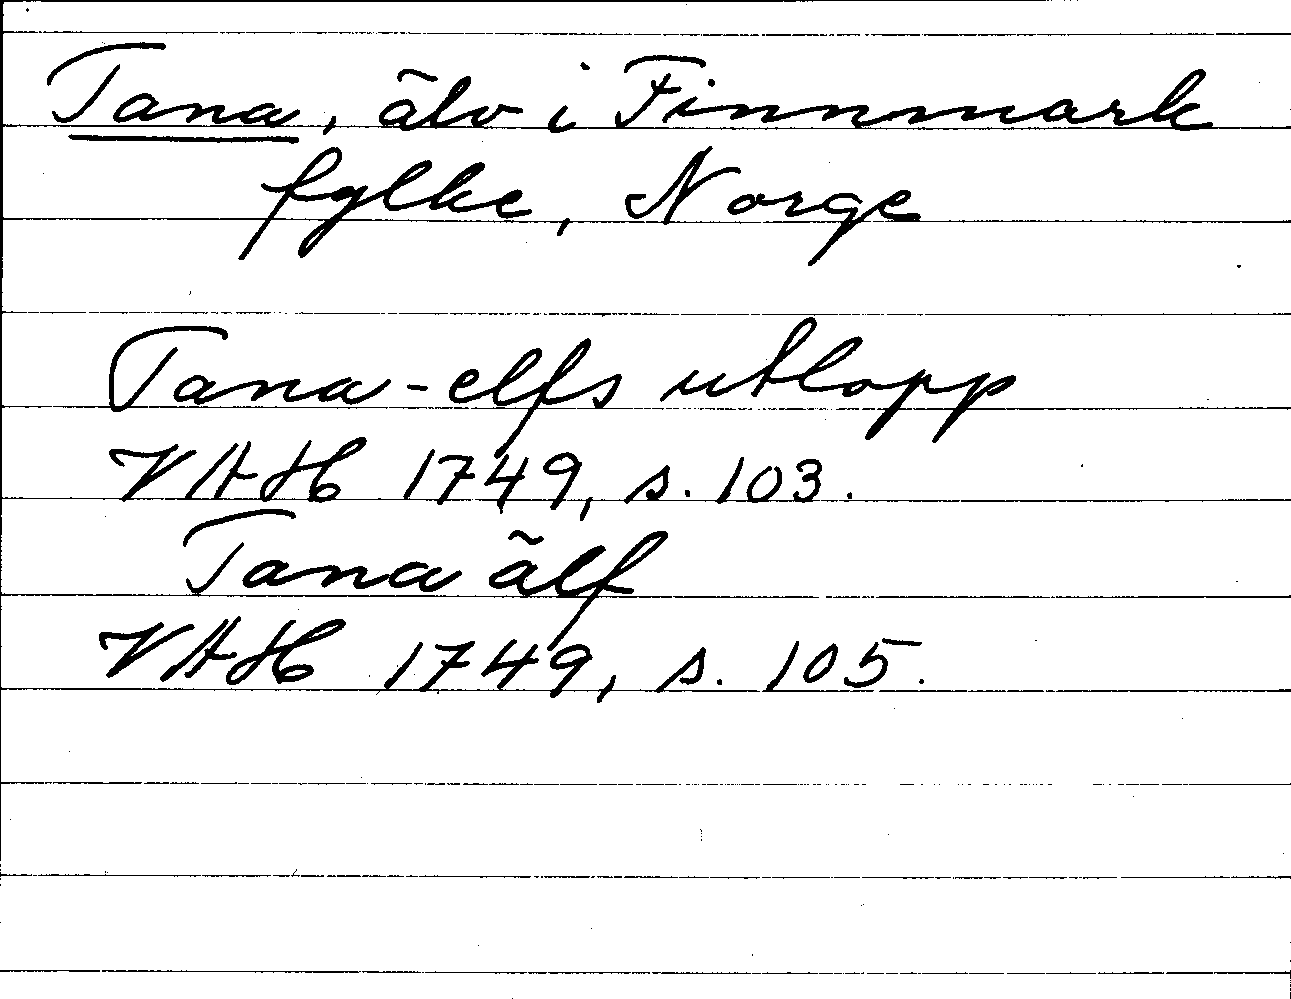 Tana, älv i Finnmark
fylke, Norge
Tana-elfs utlopp
VAH 1749, s. 103.
Tana älf
VAH 1749, s. 105.